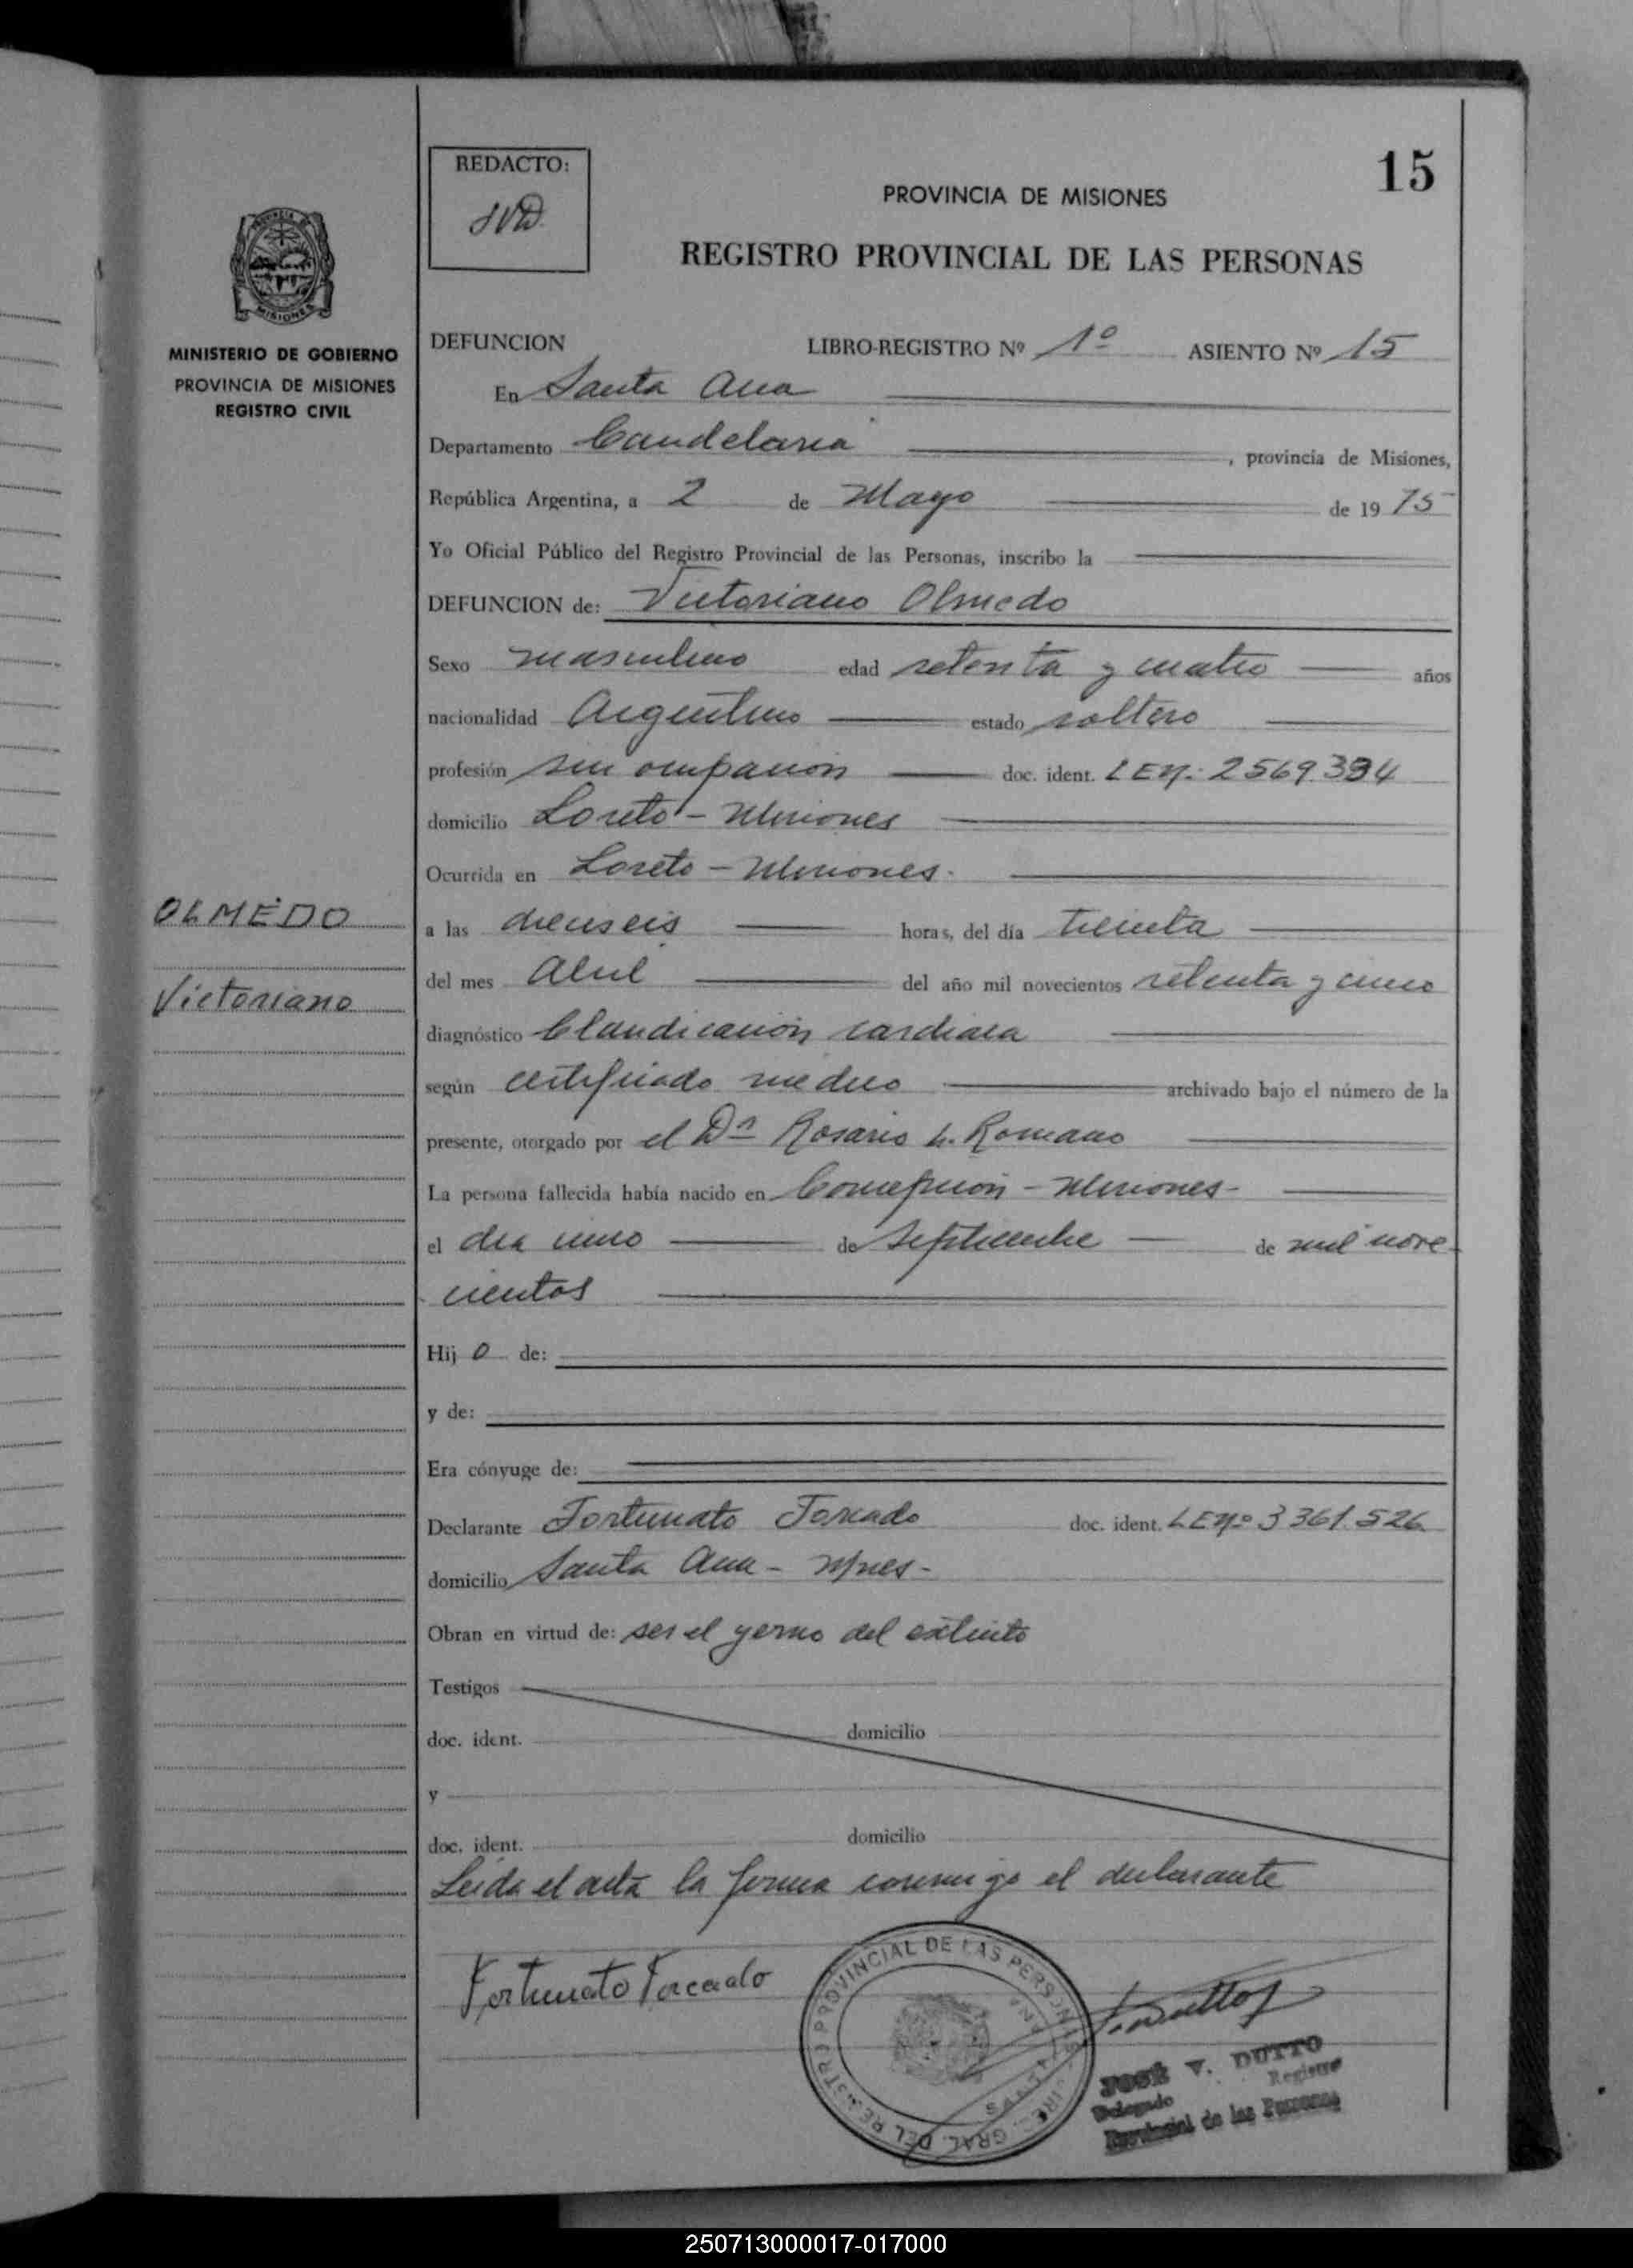 15
REDACTO:
JVD
PROVINCIA DE MISIONES
REGISTRO PROVINCIAL DE LAS PERSONAS
MINISTERIO DE GOBIERNO
PROVINCIA DE MISIONES
REGISTRO CIVIL
DEFUNCION LIBRO-REGISTRO Nº 1º ASIENTO Nº 15
En Santa Ana
Departamento Candelaria , provincia de Misiones,
República Argentina, a 2 de Mayo de 19 75
Yo Oficial Público del Registro Provincial de las Personas, inscribo la
DEFUNCION de: Victoriano Olmedo
Sexo masculino edad setenta y cuatro años
nacionalidad Argentino estado soltero
profesión sin ocupación doc. ident. LENº: 2569.394
domicilio Loreto - Misiones
Ocurrida en Loreto - Misiones.
OLMEDO
Victoriano
a las dieciseis horas, del día treinta
del mes Abril del año mil novecientos setenta y cinco
diagnóstico Claudicación cardiaca
según certificado medico archivado bajo el número de la
presente, otorgado por el Dr Rosario L. Romano
La persona fallecida había nacido en Concepción - Misiones -
el dia uno de Septiembre de mil nove
cientos
Hij o de:
y de:
Era cónyuge de:
Declarante Fortunato Forcado doc. ident. LENº 3361.526
domicilio Santa Ana - Mnes -
Obran en virtud de: ser el yerno del extinto
Testigos
doc. ident. domicilio
y
doc. ident. domicilio
Leida el acta la firma conmigo el declarante
Fortunato Forcado
PROVINCIAL DE LAS PERSONAS
GRAL. DEL REGISTRO
SANTA ANA
JOSÉ V. DUTTO
Delegado Registro
Provincial de las Personas
250713000017-017000